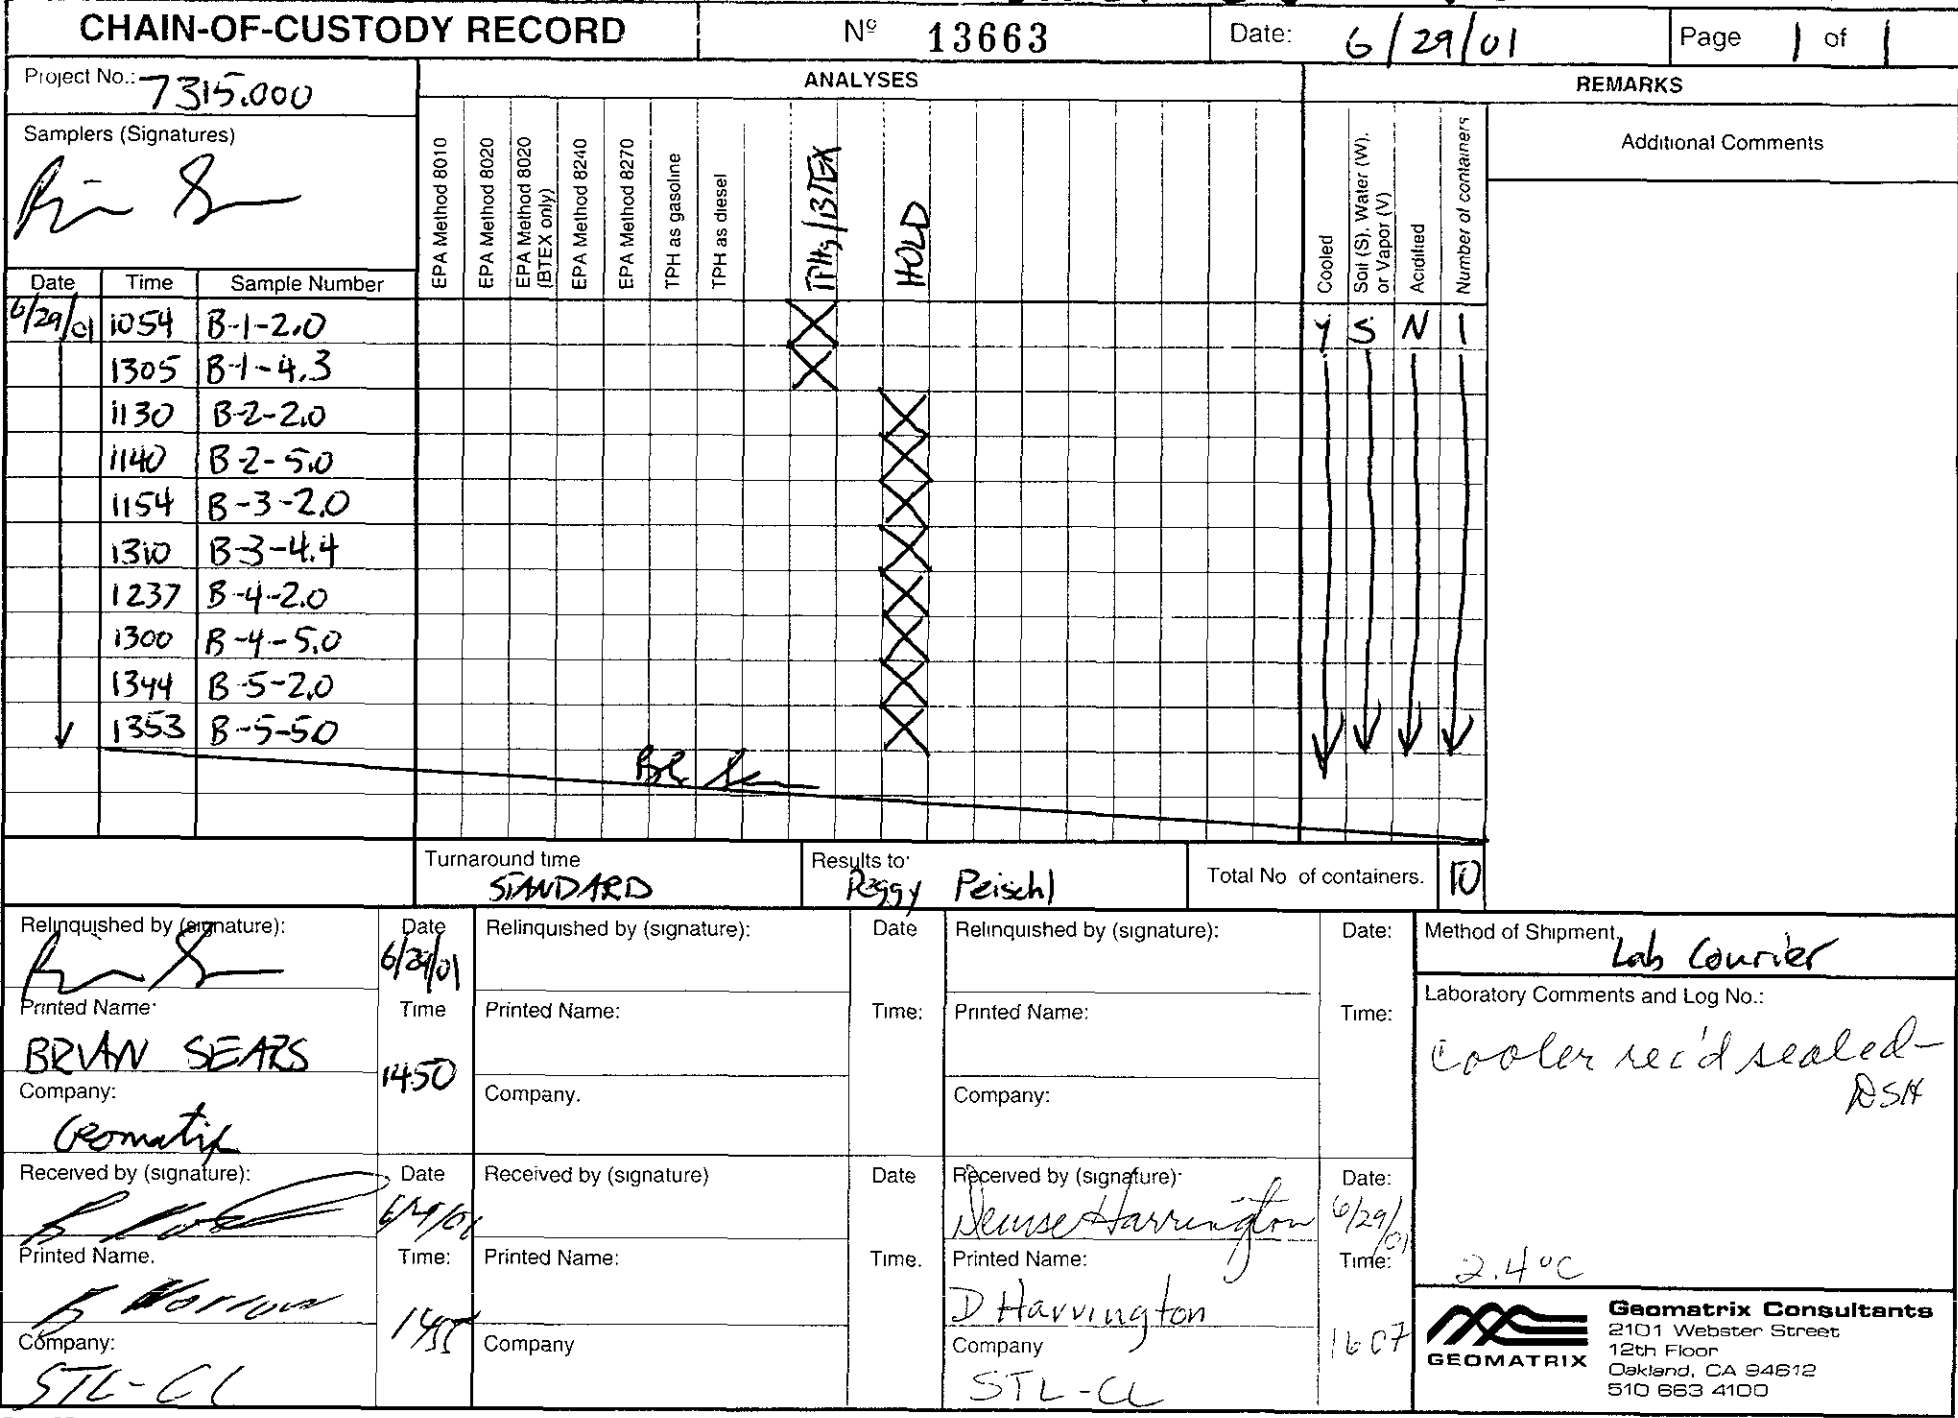 CHAIN-OF-CUSTODY RECORD
Nº 13663
Date: 6/29/01
Page 1 of 1
Project No.: 7315.000
ANALYSES
REMARKS
Samplers (Signatures)
EPA Method 8010
EPA Method 8020
EPA Method 8020 (BTEX only)
EPA Method 8240
EPA Method 8270
TPH as gasoline
TPH as diesel
TPHg/BTEX
HOLD
Cooled
Soil (S), Water (W), or Vapor (V)
Acidified
Number of containers
Additional Comments
Date Time Sample Number
6/29/01 1054 B-1-2.0 X Y S N 1
1305 B-1-4.3 X
1130 B-2-2.0 X
1140 B-2-5.0 X
1154 B-3-2.0 X
1310 B-3-4.4 X
1237 B-4-2.0 X
1300 B-4-5.0 X
1344 B-5-2.0 X
1353 B-5-50 X
Turnaround time
STANDARD
Results to:
Peggy Peischl
Total No of containers. 10
Relinquished by (signature):
Date
6/29/01
Printed Name:
BRIAN SEARS
Time
1450
Company:
Geomatrix
Received by (signature):
Date
6/29/01
Printed Name.
B Morrow
Time:
1455
Company:
STL-CL
Relinquished by (signature):
Date
Printed Name:
Time:
Company.
Received by (signature)
Date
Printed Name:
Time.
Company
Relinquished by (signature):
Date:
Printed Name:
Time:
Company:
Received by (signature):
Denise Harrington
Date:
6/29/01
Printed Name:
D Harrington
Time:
1607
Company
STL-CL
Method of Shipment
Lab Courier
Laboratory Comments and Log No.:
Cooler rec'd sealed-
DSH
2.4°C
GEOMATRIX
Geomatrix Consultants
2101 Webster Street
12th Floor
Oakland, CA 94612
510 663 4100